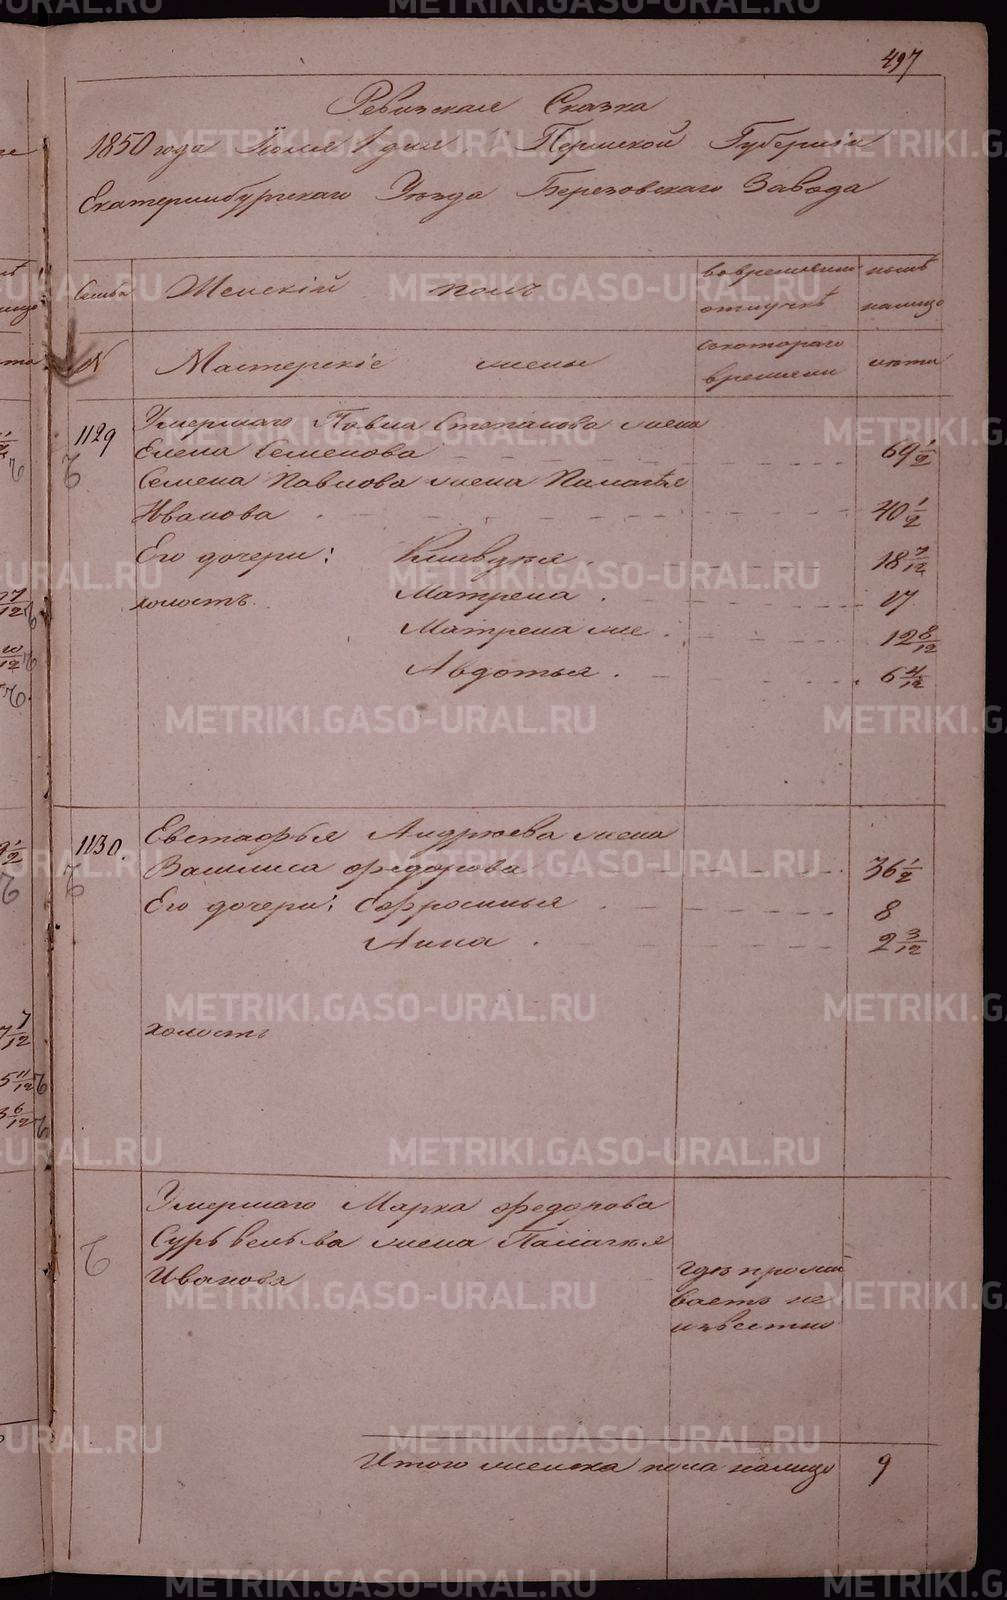 497
Ревизская Сказка
1850 года Июля 1 дня Пермской Губернiи
Екатеринбургскаго Уезда Березовскаго Завода
Семьи Женскiй полъ во временной отлучкѣ нынѣ на лицо
№ Мастерскiе жены съ котораго времени лѣта
1129 Умершаго Павла Степанова жена
Елена Семенова 69 1/2
Семена Павлова жена Пилагѣя
Иванова 40 1/2
Его дочери: Клавдѣя 18 7/12
холостъ. Матрена 17
Матрена мне 12 8/12
Авдотья 6 4/12
1130. Евстафья Андрѣева жена
Василиса Федорова 36 1/2
Его дочери: Ефросинья 8
Анна 2 3/12
холостъ
Умершаго Марка Федорова
жена Палагѣя
Иванова гдѣ прожи
ваетъ не
извѣстно
Итого женска пола на лицо 9
METRIKI.GASO-URAL.RU